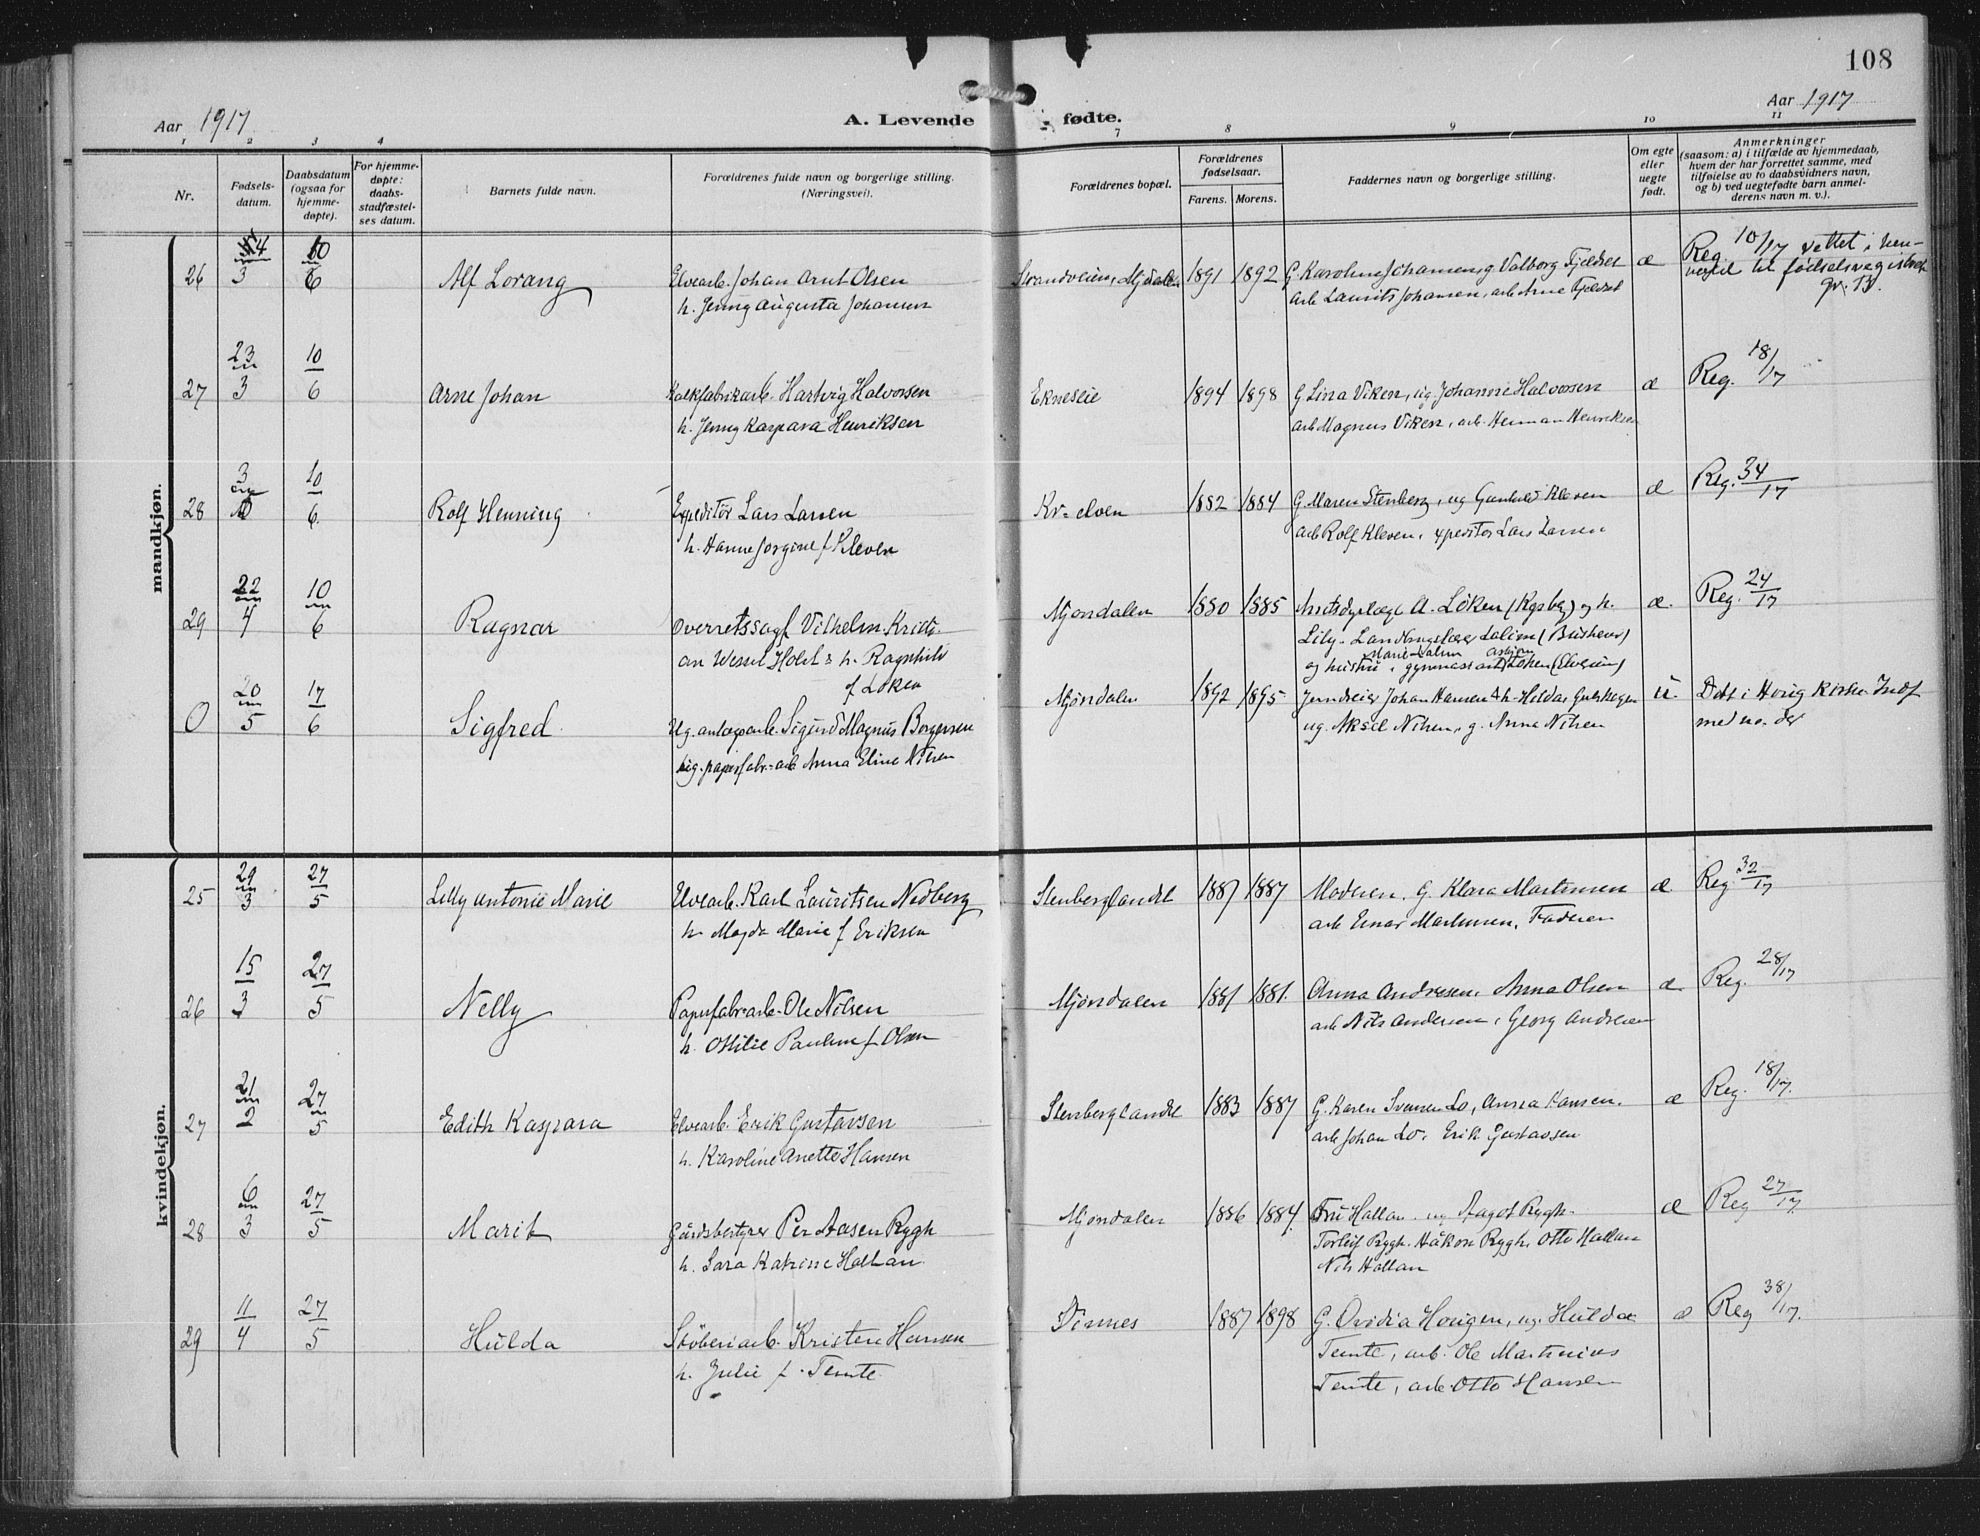 108
Aar 1917
A. Levende fødte.
Aar 1917
1 2 3 4 7 8 9 10 11
Nr.
Fødsels-
datum.
Daabsdatum
(ogsaa for
hjemme-
døpte).
For hjemme-
døpte:
daabs-
stadfæstel-
ses datum.
Barnets fulde navn.
Forældrenes fulde navn og borgerlige stilling.
(Næringsvei).
Forældrenes bopæl.
Forældrenes
fødselsaar.
Farens. Morens.
Faddernes navn og borgerlige stilling.
Om egte
eller
uegte
født.
Anmerkninger
(saasom: a) i tilfælde av hjemmedaab,
hvem der har forrettet samme, med
tilføielse av to daabsvidners navn,
og b) ved uegtefødte barn anmel-
derens navn m. v.).
mandkjøn.
26 3 10/6 Alf Lorang Elvearb. Johan Arnt Olsen Strandveien, Mjdalen 1891 1892 G. Karoline Johansen, g. Valborg Fjeldset æ Reg. 10/17 rettet i hen-
h. Jenny Augusta Johansen arb Laurits Johansen, arb Arne Fjeldset til fødselsregistret
27 23/3 10/6 Arne Johan Kalkfabrikarb. Hartvig Halvorsen Ekneseie 1894 1898 G Lina Viken, ug. Johanne Halvorsen æ Reg. 18/17
h. Jenny Kaspara Henriksen arb Magnus Viken, arb. Herman Henriksen
28 3 10/6 Rolf Henning Expeditør Lars Larsen Kr-elven 1882 1884 G. Maren Stenberg, ug Gunhild Kleven æ Reg. 34/17
h. Hanne Jorgine f Kleven arb Rolf Kleven, expeditør Lars Larsen
29 22/4 10/6 Ragnar Overretssagf Vilhelm Kristi- Mjøndalen 1880 1885 A. Løken (Rygsby) og h. æ. Reg. 24/17
an Wessel Holst & h. Ragnhild Lilly. Dalim (Buskerud)
Marie Dalim Asbjørn
f Løken og hustru, gymnasiast Løken (Elverum)
0 20/5 17/6 Sigfred Ug. anlægsarb. Sigurd Magnus Borgersen Mjøndalen 1892 1895 Johan Hansen & h. Hilda Gulskogen u. Døbt i Houg Kirke Indf
ug. papirfabr-arb Anna Eline Nilsen ug. Aksel Nilsen, g. Anna Nilsen med no. der
kvindekjøn.
25 29/3 27/5 Lilly Antonie Marie Elvearb. Karl Lauritsen Nedberg Stenberglandet 1887 1887 Moderen, G. Klara Martinsen æ Reg 32/17
h. Magda Marie f Eriksen arb Einar Martinsen, Faderen
26 15/3 27/5 Nelly Papirfabr-arb. Ole Nilsen Mjøndalen 1881 1881. Anna Andresen, Anna Olsen æ Reg. 28/17
h. Ottilie Pauline f Olsen arb Nils Andersen, Georg Andresen
27 21/2 27/5 Edith Kaspara Elvearb. Erik Gustavsen Stenberglandet 1883 1887 G. Karen Svensen Lo, Anna Hansen. æ Reg. 18/17.
h. Karoline Anette Hansen arb Johan Lo, Erik Gustavsen
28 6/3 27/5 Marit Gårdsbestyrer Per Aasen Rygh Mjøndalen 1886 1884. Fru Hallan ug Aagot Rygh. æ Reg 27/17.
h. Sara Katrine Hallan. Torleif Rygh. Håkon Rygh, Otto Hallan
Nils Hallan
29 11/4 27/5 Hulda Støberiarb. Kristen Hansen Dinnes 1887 1898 G. Ovidia Hougen, ug. Hulda æ Reg 38/17.
h. Julie f. Temte. Temte, arb. Ole Martinius
Temte, arb Otto Hansen